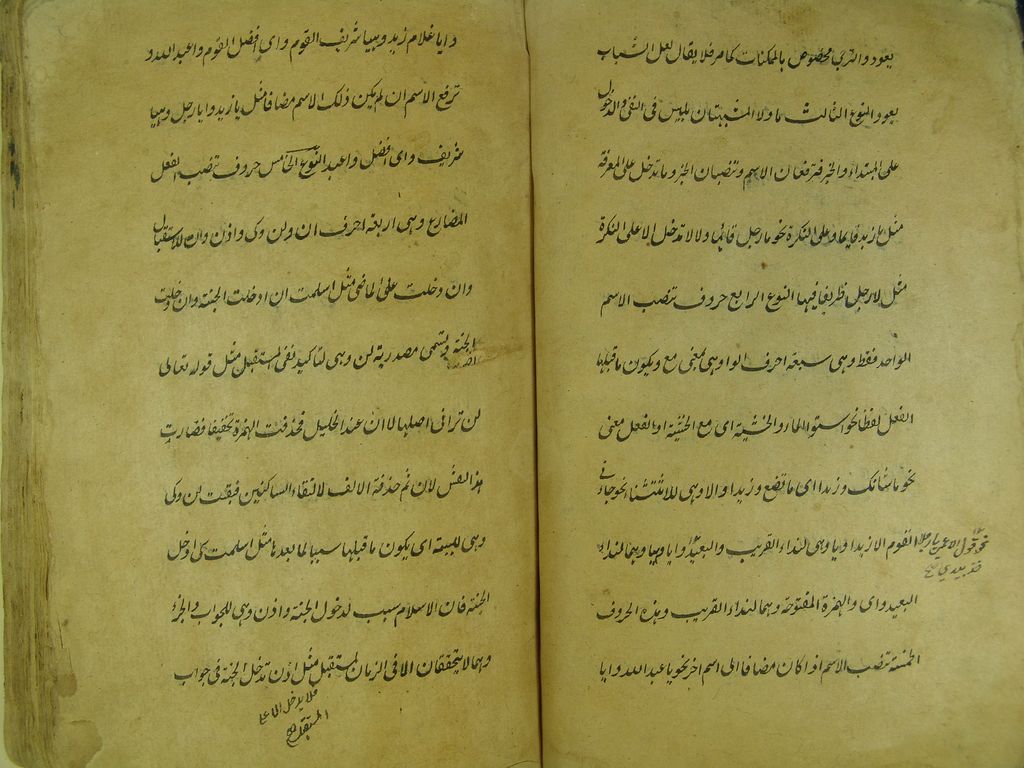 يعود والترجي مخصوص بالممكنات كما مر فلا يقال لعل الشباب
يعود النوع الثالث ما ولا المشبهتان بليس في النفي والدخول
على المبتداء والخبر فترفعان الاسم وتنصبان الخبر وما تدخل على المعرفة
مثل ما زيد قايما وعلى النكرة نحو ما رجل قائما ولا لا تدخل الا على النكرة
مثل لا رجل ظريفا فيها النوع الرابع حروف تنصب الاسم
الواحد فقط وهي سبعة احرف الواو هي بمعنى مع ويكون ما قبلها
الفعل لفظا نحو استوا الماء والخشبة اى مع الخشبة او الفعل معنى
نحو ما شانك وزيدا اى ما تصنع وزيدا والا وهي للاستثناء نحو جائنى
القوم الا زيدا ويا وهى لنداء القريب والبعيد وايا وهيا وهما لنداء
نحو قول الاعمى يا رجلا خذ بيدي صح
البعيد واى والهمزة المفتوحة وهما لنداء القريب وهذه الحروف
الخمسة تنصب الاسم اذا كان مضافا الى اسم اخر نحو يا عبد الله وايا
دايا غلام زيد وهيا شريف القوم واى افضل القوم واعبد الله و
ترفع الاسم ان لم يكن ذلك الاسم مضافا مثل يا زيد وايا رجل وهيا
شريف واى افضل واعبد النوع الخامس حروف تنصب الفعل
المضارع وهى اربعة احرف ان ولن وكى واذن وان للاستقبال
وان دخلت على الماضى مثل اسلمت ان ادخلت الجنة وان دخلت
الجنة وتسمى مصدرية لن وهى لتاكيد نفى المستقبل مثل قوله تعالى
لن ترانى اصلها لا ان عند الخليل فحذفت الهمزة تخفيفا فصارت
هذا لفتل لان ثم حذفة الالف لالتقاء الساكنين فبقت لن وكى
وهى للسببة اى يكون ما قبلها سببا لما بعدها مثل اسلمت كى ادخل
الجنة فان الاسلام سبب لدخول الجنة واذن وهى للجواب والجزء
وهما لا يتحققان الا فى الزمان المستقبل مثل اذن تدخل الجنة فى جواب
فلا يدخل الا على
المستقبل صح